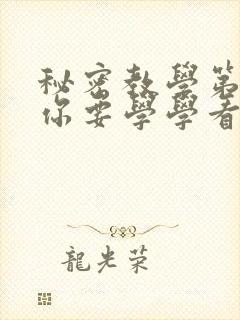 秘密教學第
你要學學看
龍光榮